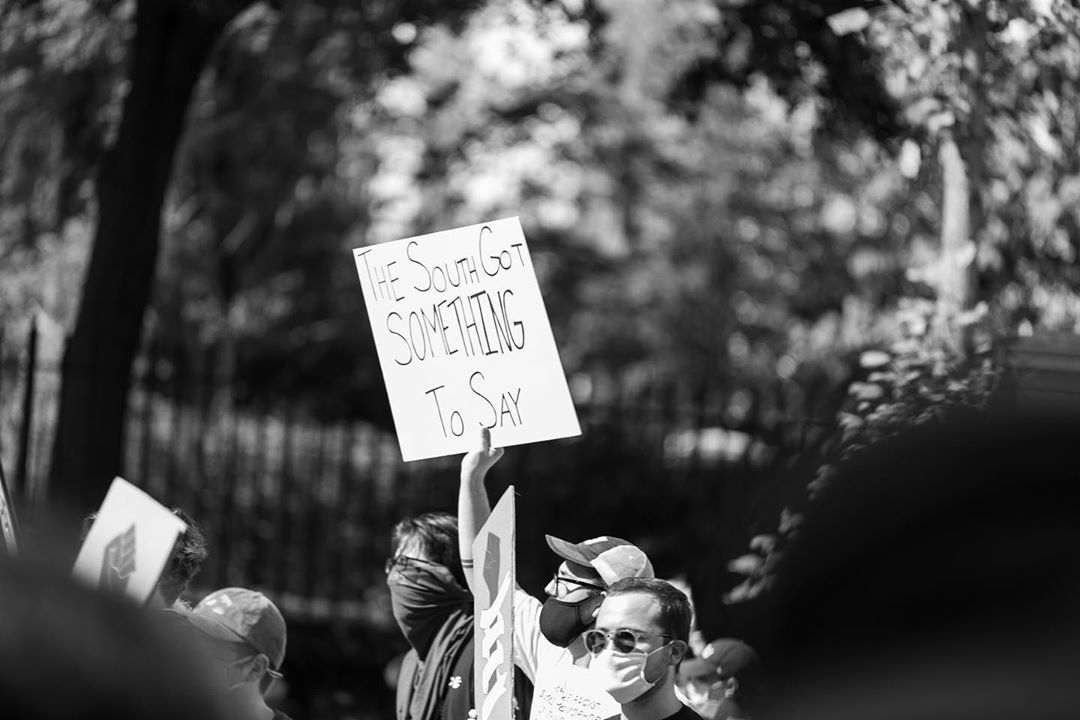 THE SOUTH GOT
SOMETHING
TO SAY